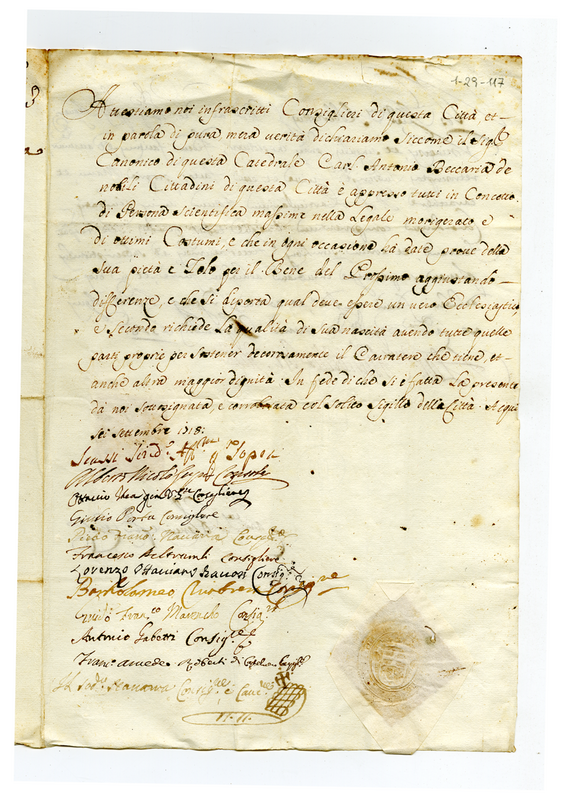 1-29-117
Attestiamo noi infrascritti Consiglieri di questa Città et
in parola di pura mera verità dichiariamo Siccome il Sigr
Canonico di questa Catedrale Carl' Antonio Beccaria de
nobili Cittadini di questa Città è appresso tutti in Concetto
di Persona scientifica massime nella Legale morigerato e
di ottimi Costumi, e che in ogni occasione hà date prove della
sua pietà e Zelo per il Bene del Prossimo aggiustando
differenze, e che si diporta qual deve essere un vero Ecclesiastico
e secondo richiede la qualità di sua nascità avendo tutte quelle
parti proprie per sostener decorosamente il Carratere che tiene, et
anche altre maggior dignità. In fede di che si è fatta la presente
da noi sottosignata, e corroborata col solito Sigillo della Città. Acqui
sei settembre 1718:
Consigliere
Giulio Porta Consigliere
Francesco Beltrami Consigliere
Lorenzo Ottaviano Consig.re
Bartolomeo
Guido Franco Consigre
Antonio Gabetti Consiglre
Franco amedeo Roberti di